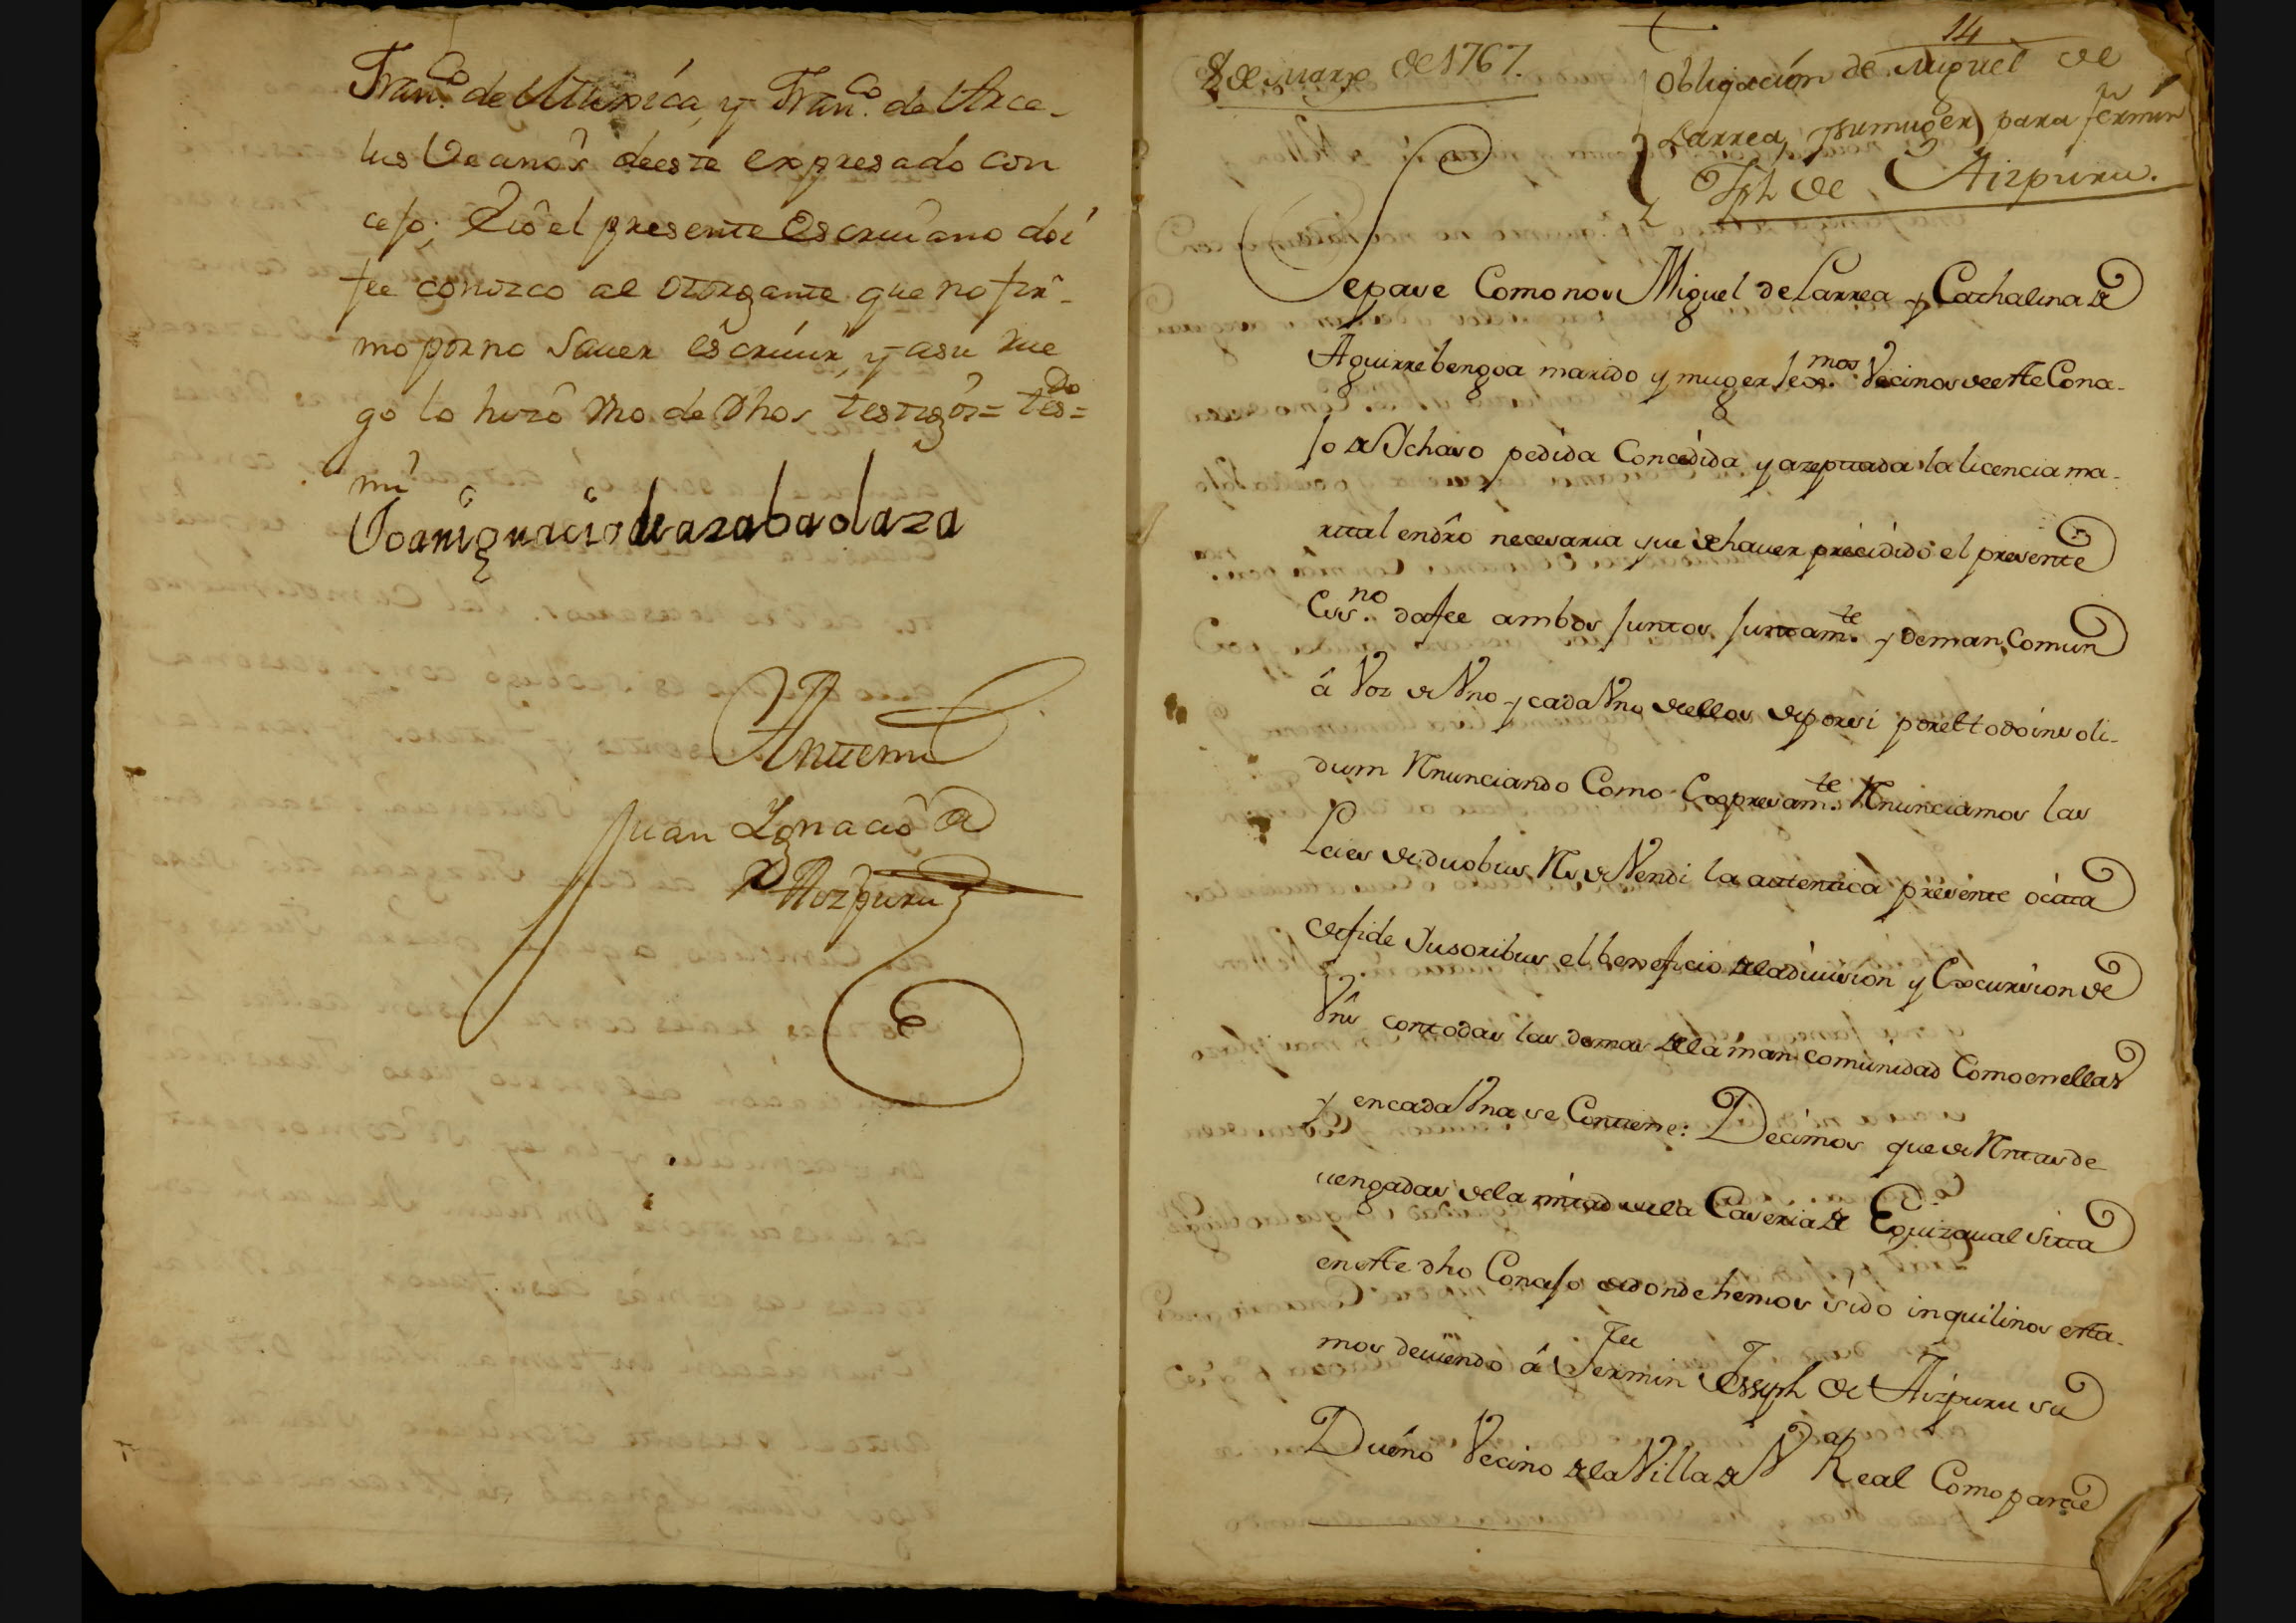 Fran.co de Munica, y Fran.co de Arce-
lus Veçinos deeste expresado con
cejo; Éiô el presente Escriuano doi
fee conozco al otorgante que no fir-
mo por no sauer escriuir, y asu rue
go lo hizô Vno de dhos testigos= tes.do=
mi
Joanignacio de azabaolaza
Antemi
Juan Ygnacio de
Aizpuru
14
8 de Marzo de 1767.
Obligación de Miguel de
Larrea, y su muger para fermin
Jph de Aizpuru.
Sepase Como nos Miguel de Larrea y Cathalina de
Aguirrebengoa marido y muger lex.mos Vecinos de este Conce-
jo de Ichaso pedida Concedida y azeptada la licencia ma-
rital endrô necesaria que de hauer precidido el presente
Ess.no da fee ambos Juntos Juntam.te y de man Comun
â Voz de Vno y cada Vno de ellos de por si por el todo insoli-
dum Renunciando Como Expresam.te Renunciamos las
Leies de duobus Res de Vendi la autentica presente ocita
de fide Jusoribus el beneficio de la diuision y Excursion de
Vns con todas las demas de la man comunidad Como en ellas
y en cada Vna se Contiene: Decimos que de Rentas de
uengadas de la mitad de la Caseria de Eguizaual Sitta
en este dho Concejo de donde hemos sido inquilinos esta-
mos deuiendo â Fermin Joseph de Aizpuru su
Dueño Vecino de la Villa de V.a Real Como parte